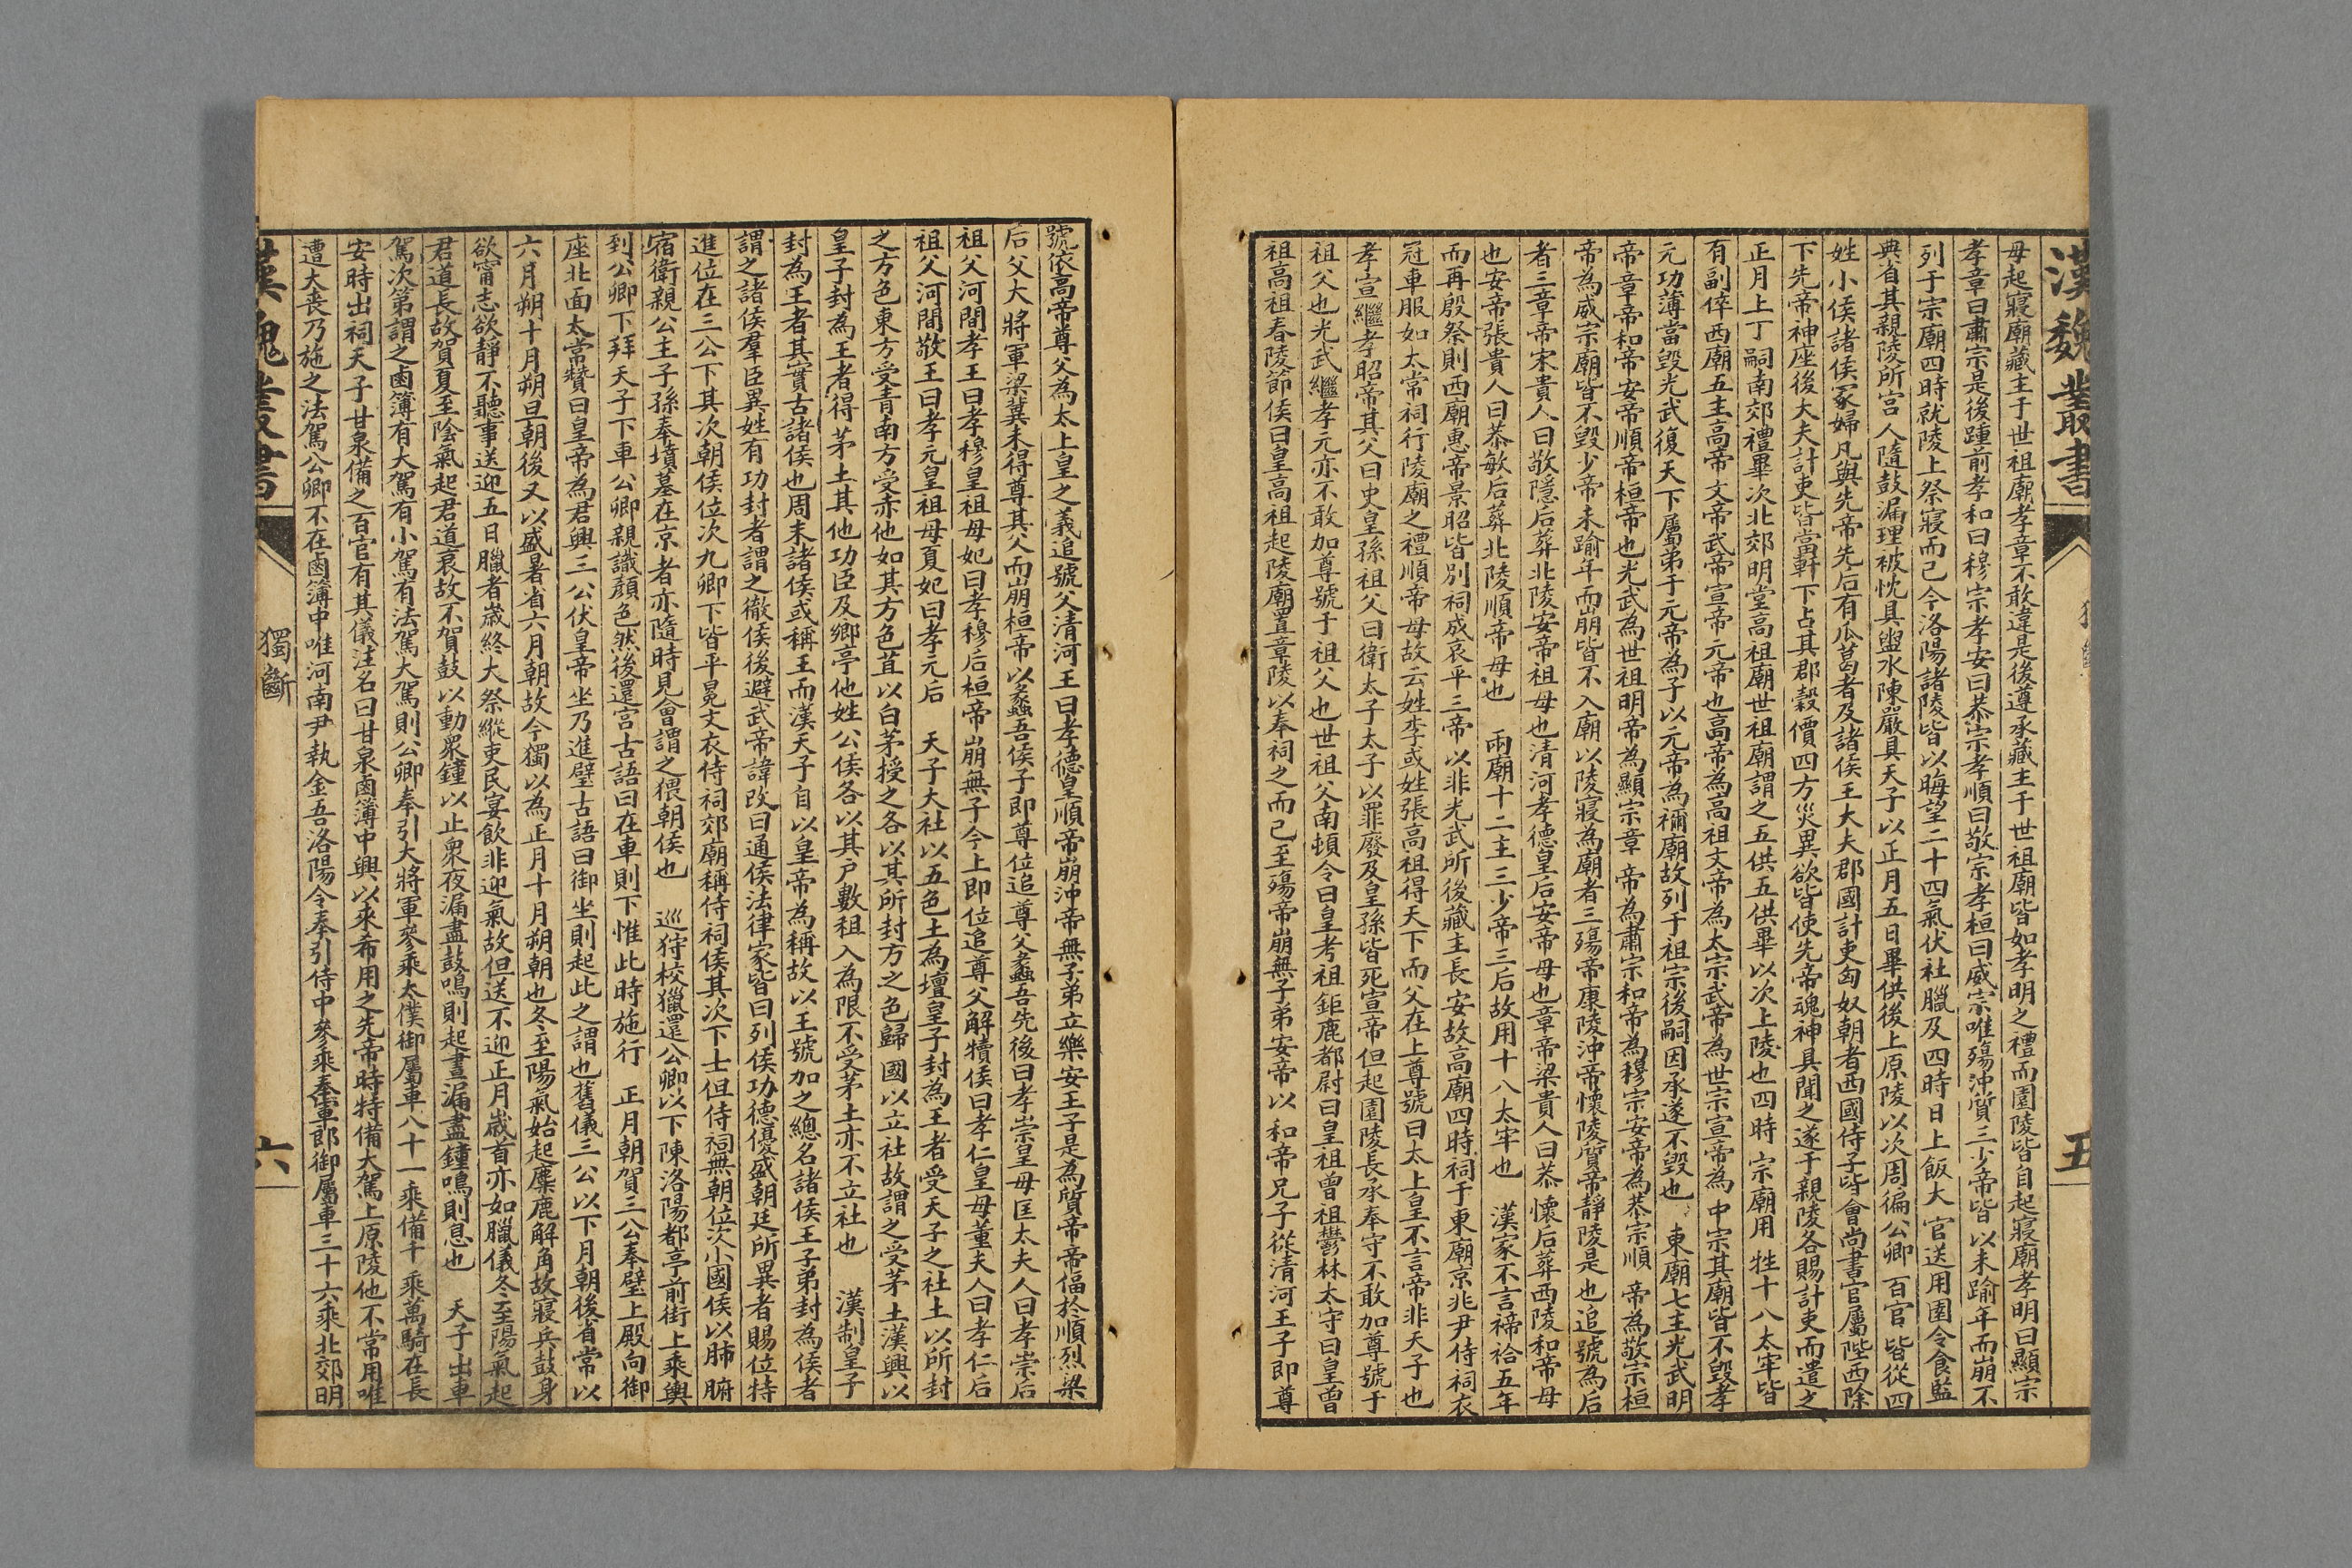 漢魏叢書
五
母起寢廟藏主于世祖廟孝章不敢違是後遵承藏主于世祖廟皆如孝明之禮而園陵皆自起寢廟孝明曰顯宗
孝章曰肅宗是後踵前孝和曰穆宗孝安曰恭宗孝順曰敬宗孝桓曰威宗唯殤沖質三少帝皆以未踰年而崩不
列于宗廟四時就陵上祭寢而已今洛陽諸陵皆以晦望二十四氣伏社臘及四時日上飯大官送用園令食監
典省其親陵所宮人隨鼓漏理被枕具盥水陳嚴具天子以正月五日畢供後上原陵以次周徧公卿百官皆從四
姓小侯諸侯冢婦凡與先帝先后有瓜葛者及諸侯王大夫郡國計吏匈奴朝者西國侍子皆會尚書官屬陛西除
下先帝神座後大夫計吏皆當軒下占其郡穀價四方災異欲皆使先帝魂神具聞之遂于親陵各賜計吏而遣之
正月上丁嗣南郊禮畢次北郊明堂高祖廟世祖廟謂之五供五供畢以次上陵也四時宗廟用牲十八太牢皆
有副倅西廟五主高帝文帝武帝宣帝元帝也高帝為高祖文帝為太宗武帝為世宗宣帝為中宗其廟皆不毀孝
元功薄當毀光武復天下屬弟于元帝為子以元帝為禰廟故列于祖宗後嗣因承遂不毀也 東廟七主光武明
帝章帝和帝安帝順帝桓帝也光武為世祖明帝為顯宗章 帝為肅宗和帝為穆宗安帝為恭宗順 帝為敬宗桓
帝為威宗廟皆不毀少帝未踰年而崩皆不入廟以陵寢為廟者三殤帝康陵沖帝懷陵質帝靜陵是也追號為后
者三章帝宋貴人曰敬隱后葬北陵安帝祖母也清河孝德皇后安帝母也章帝梁貴人曰恭懷后葬西陵和帝母
也安帝張貴人曰恭敏后葬北陵順帝母也 兩廟十二主三少帝三后故用十八太牢也 漢家不言禘祫五年
而再殷祭則西廟惠帝景昭皆別祠成哀平三帝以非光武所後藏主長安故高廟四時祠于東廟京兆尹侍祠衣
冠車服如太常祠行陵廟之禮順帝母故云姓李或姓張高祖得天下而父在上尊號曰太上皇不言帝非天子也
孝宣繼孝昭帝其父曰史皇孫祖父曰衛太子太子以罪廢及皇孫皆死宣帝但起園陵長承奉守不敢加尊號于
祖父也光武繼孝元亦不敢加尊號于祖父也世祖父南頓令曰皇考祖鉅鹿都尉曰皇祖曾祖鬱林太守曰皇曾
祖高祖舂陵節侯曰皇高祖起陵廟置章陵以奉祠之而已至殤帝崩無子弟安帝以和帝兄子從清河王子即尊
號依高帝尊父為太上皇之義追號父清河王曰孝德皇順帝崩沖帝無子弟立樂安王子是為質帝帝偪於順烈梁
后父大將軍梁冀未得尊其父而崩桓帝以蠡吾侯子即尊位追尊父蠡吾先後曰孝崇皇母匡太夫人曰孝崇后
祖父河間孝王曰孝穆皇祖母妃曰孝穆后桓帝崩無子今上即位追尊父解犢侯曰孝仁皇母董夫人曰孝仁后
祖父河間敬王曰孝元皇祖母夏妃曰孝元后 天子大社以五色土為壇皇子封為王者受天子之社土以所封
之方色東方受青南方受赤他如其方色苴以白茅授之各以其所封方之色歸國以立社故謂之受茅土漢興以
皇子封為王者得茅土其他功臣及鄉亭他姓公侯各以其戶數租入為限不受茅土亦不立社也 漢制皇子
封為王者其實古諸侯也周末諸侯或稱王而漢天子自以皇帝為稱故以王號加之總名諸侯王子弟封為侯者
謂之諸侯羣臣異姓有功封者謂之徹侯後避武帝諱改曰通侯法律家皆曰列侯功德優盛朝廷所異者賜位特
進位在三公下其次朝侯位次九卿下皆平冕文衣侍祠郊廟稱侍祠侯其次下士但侍祠無朝位次小國侯以肺腑
宿衛親公主子孫奉墳墓在京者亦隨時見會謂之猥朝侯也 巡狩校獵還公卿以下陳洛陽都亭前街上乘輿
到公卿下拜天子下車公卿親識顏色然後還宮古語曰在車則下惟此時施行 正月朝賀三公奉璧上殿向御
座北面太常贊曰皇帝為君興三公伏皇帝坐乃進璧古語曰御坐則起此之謂也舊儀三公以下月朝後省常以
六月朔十月朔旦朝後又以盛暑省六月朝故今獨以為正月十月朔朝也冬至陽氣始起麋鹿解角故寢兵鼓身
欲甯志欲靜不聽事送迎五日臘者歲終大祭縱吏民宴飲非迎氣故但送不迎正月歲首亦如臘儀冬至陽氣起
君道長故賀夏至陰氣起君道衰故不賀鼓以動衆鐘以止衆夜漏盡鼓鳴則起晝漏盡鐘鳴則息也 天子出車
駕次第謂之鹵簿有大駕有小駕有法駕大駕則公卿奉引大將軍參乘太僕御屬車八十一乘備千乘萬騎在長
安時出祠天子甘泉備之百官有其儀注名曰甘泉鹵簿中興以來希用之先帝時特備大駕上原陵他不常用唯
遭大喪乃施之法駕公卿不在鹵簿中唯河南尹執金吾洛陽令奉引侍中參乘奉車郎御屬車三十六乘北郊明
漢魏叢書
獨斷
六